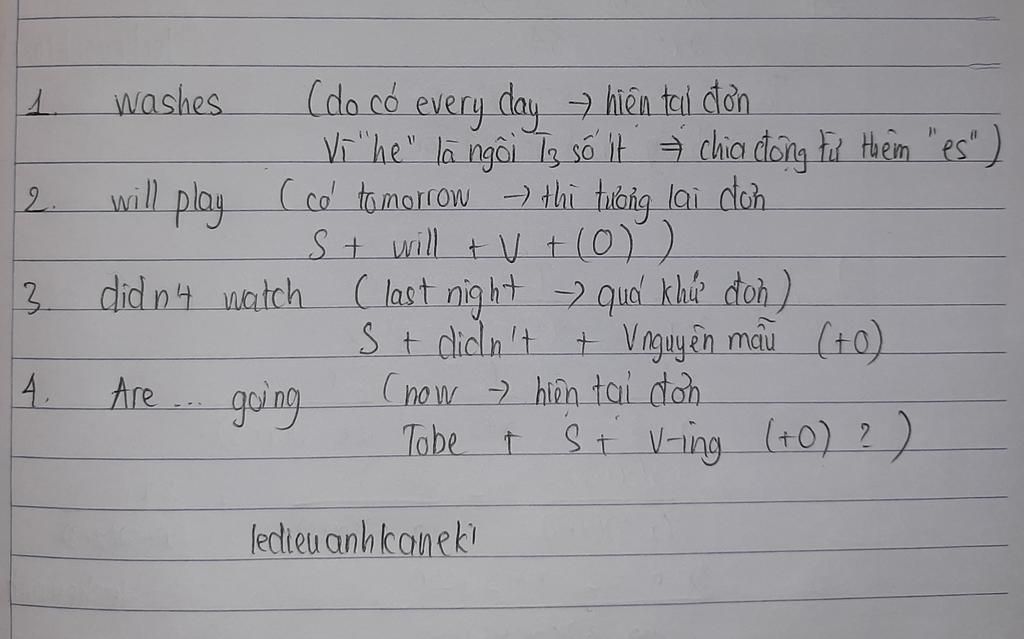 1. washes (do có every day → hiện tại đơn
Vì "he" là ngôi T3 số ít ⇒ chia động từ thêm "es")
2. will play (có tomorrow → thì tương lai đơn
S + will + V + (O))
3. didn't watch (last night → quá khứ đơn)
S + didn't + V nguyên mẫu (+O)
4. Are ... going (now → hiện tại đơn
Tobe + S + V-ing (+O) ? )
ledieuanhkaneki